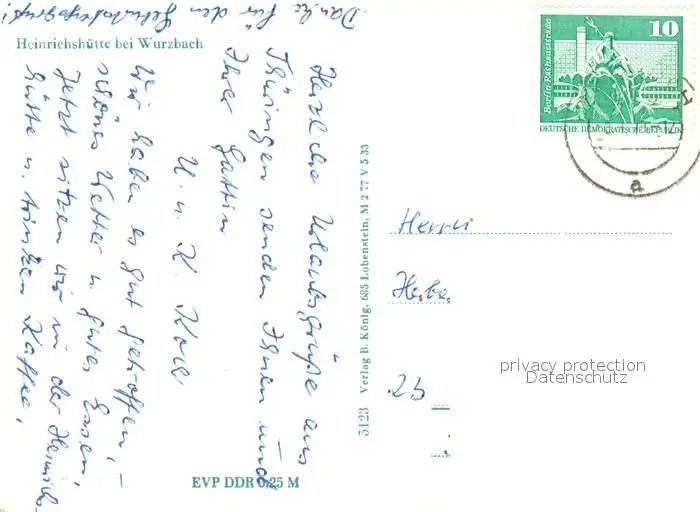 Danke für den Geburtstagsgruß!
Heinrichshütte bei Wurzbach
Herzliche Urlaubsgrüße aus
Thüringen senden Ihnen und
Ihrer Gattin
U. u. K. Koll
Wir haben es gut getroffen, –
schönes Wetter u. gutes Essen,
Jetzt sitzen wir in der Heinrichs-
hütte u. trinken Kaffee,
EVP DDR 0,25 M
5123 Verlag B. König, 685 Lobenstein, M 2 77 V 5 33
10
Berlin·Rathausstraße
DEUTSCHE DEMOKRATISCHE REPUBLIK
a
Herrn
25
privacy protection
Datenschutz